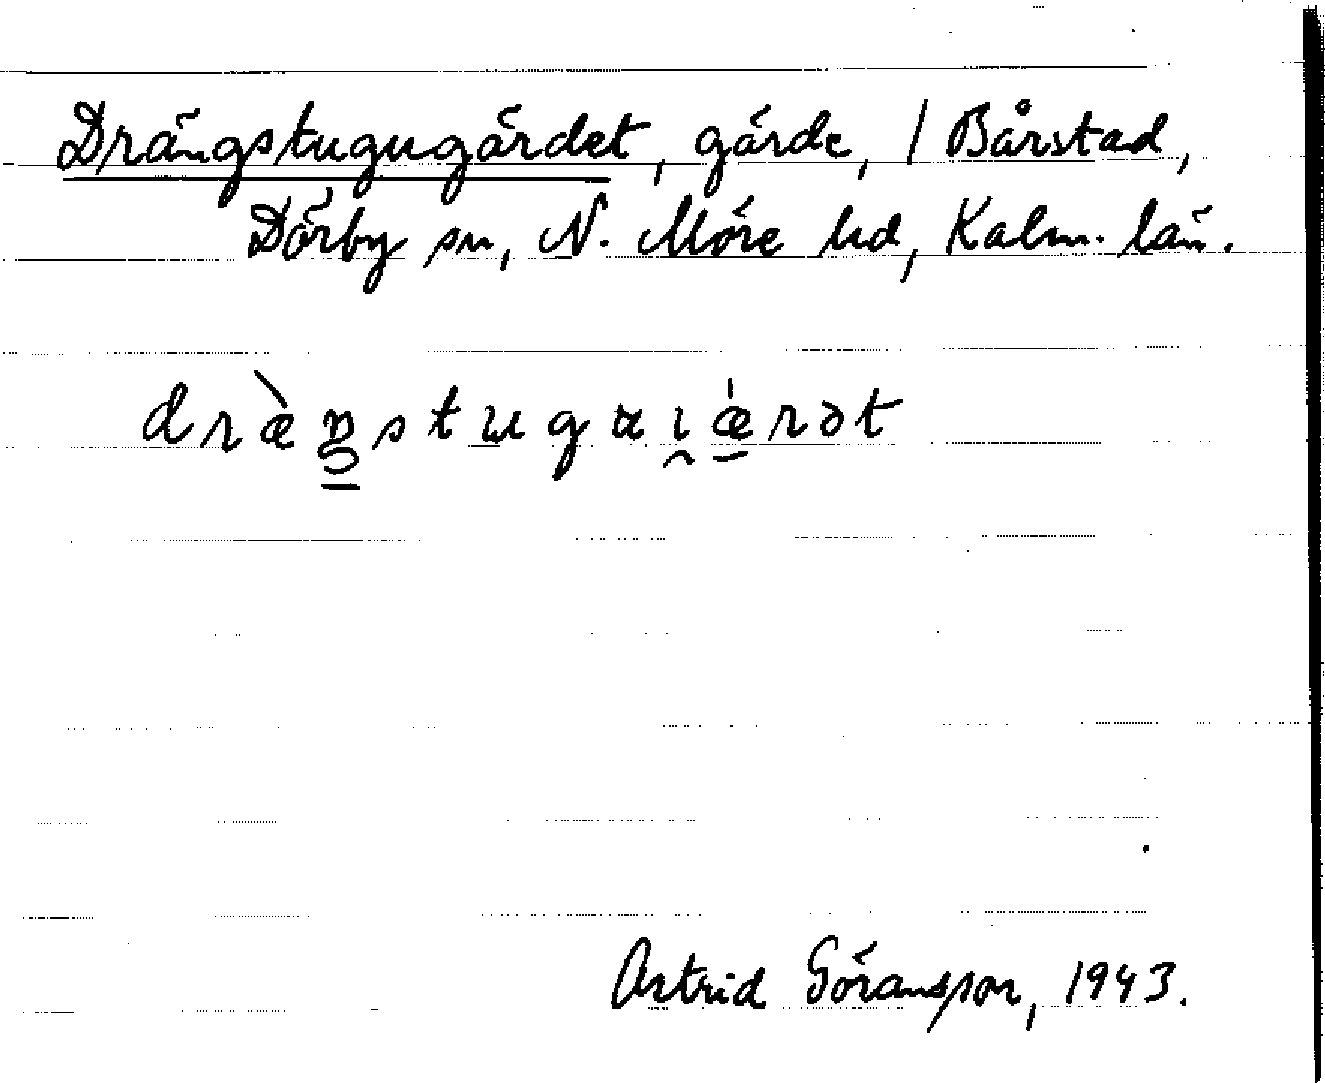 Drängstugugärdet, gärde, / Bårstad,
Dörby sn, N. Möre hd, Kalm. län.
dræ̀ŋstugaı̯ǽ̲rət
Astrid Göransson, 1943.